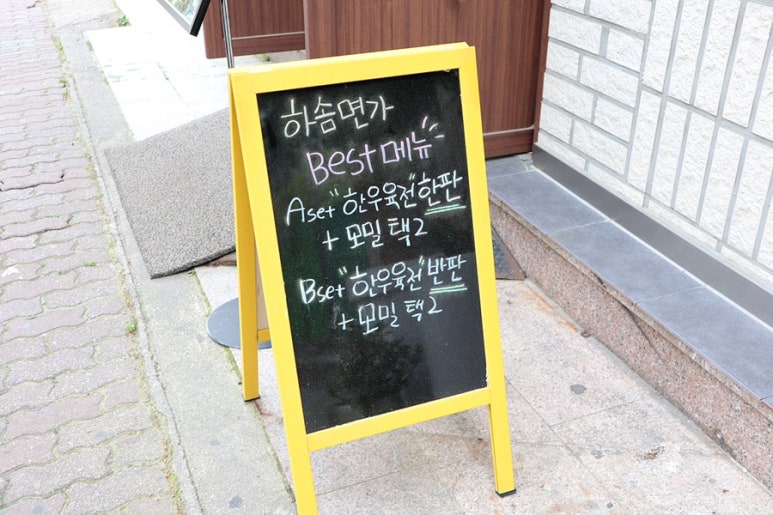 하솜면가
Best 메뉴
Aset "한우육전" 한판
+ 모밀 택2
Bset "한우육전" 반판
+ 모밀 택2